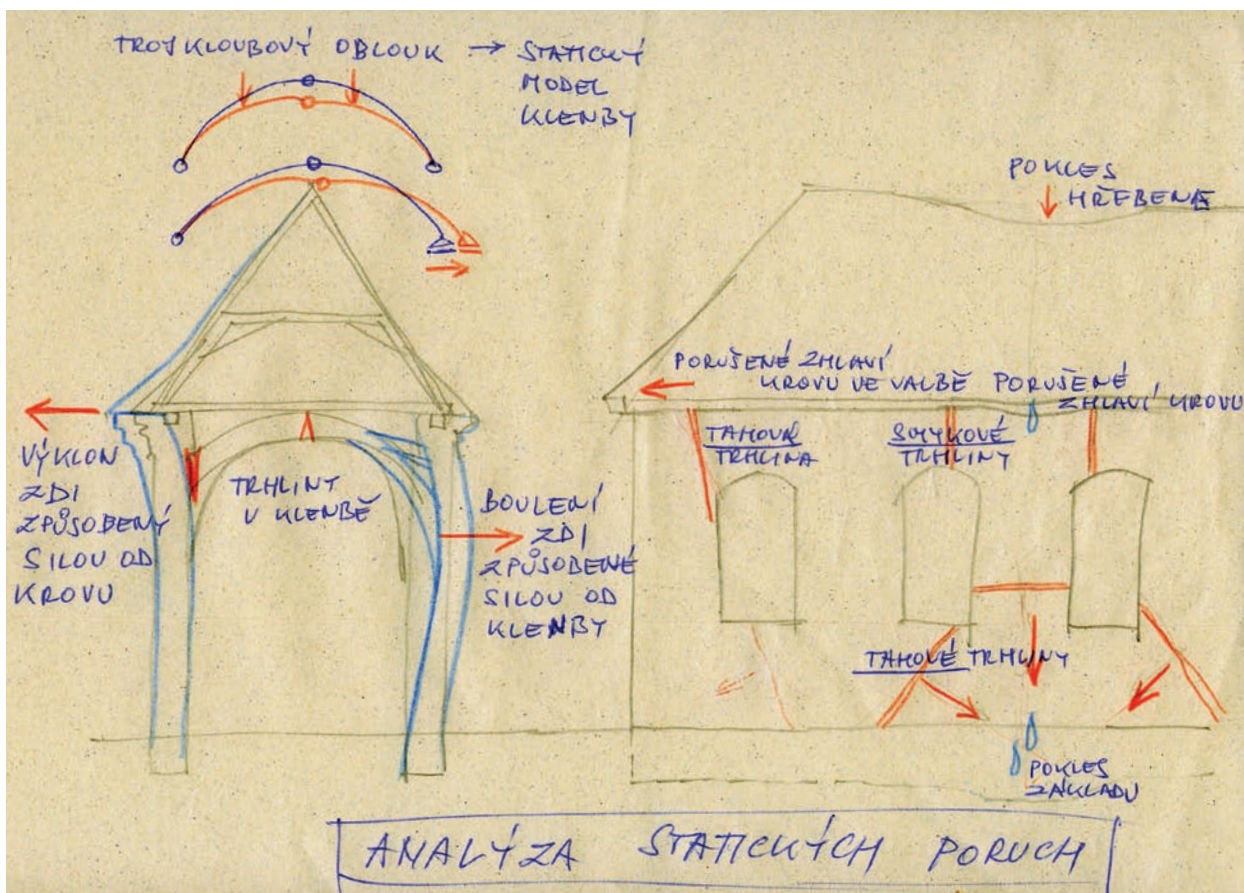 TROJKLOUBOVÝ OBLOUK → STATICKÝ
MODEL
KLENBY
POKLES
HŘEBENE
PORUŠENÉ ZHLAVÍ
KROVU VE VALBĚ
PORUŠENÉ
ZHLAVÍ KROVU
VÝKLON
ZDI
ZPŮSOBENÝ
SILOU OD
KROVU
TRHLINY
V KLENBĚ
BOULENÍ
ZDÍ
ZPŮSOBENÉ
SILOU OD
KLENBY
TAHOVÁ
TRHLINA
SMYKOVÉ
TRHLINY
TAHOVÉ TRHLINY
POKLES
ZÁKLADU
ANALÝZA STATICKÝCH PORUCH